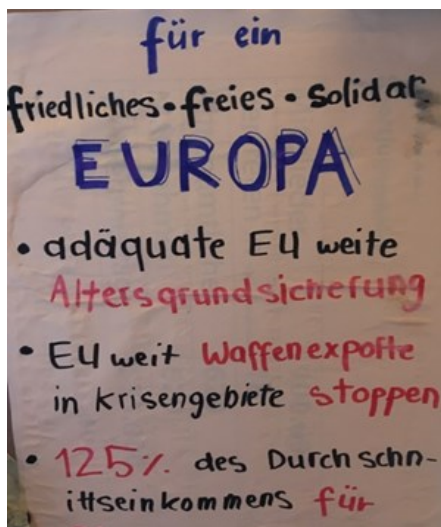 für ein
friedliches • freies • solidar.
EUROPA
• adäquate EU weite
Altersgrundsicherung
• EU weit Waffenexporte
in Krisengebiete stoppen
• 125% des Durchschn-
ittseinkommens für